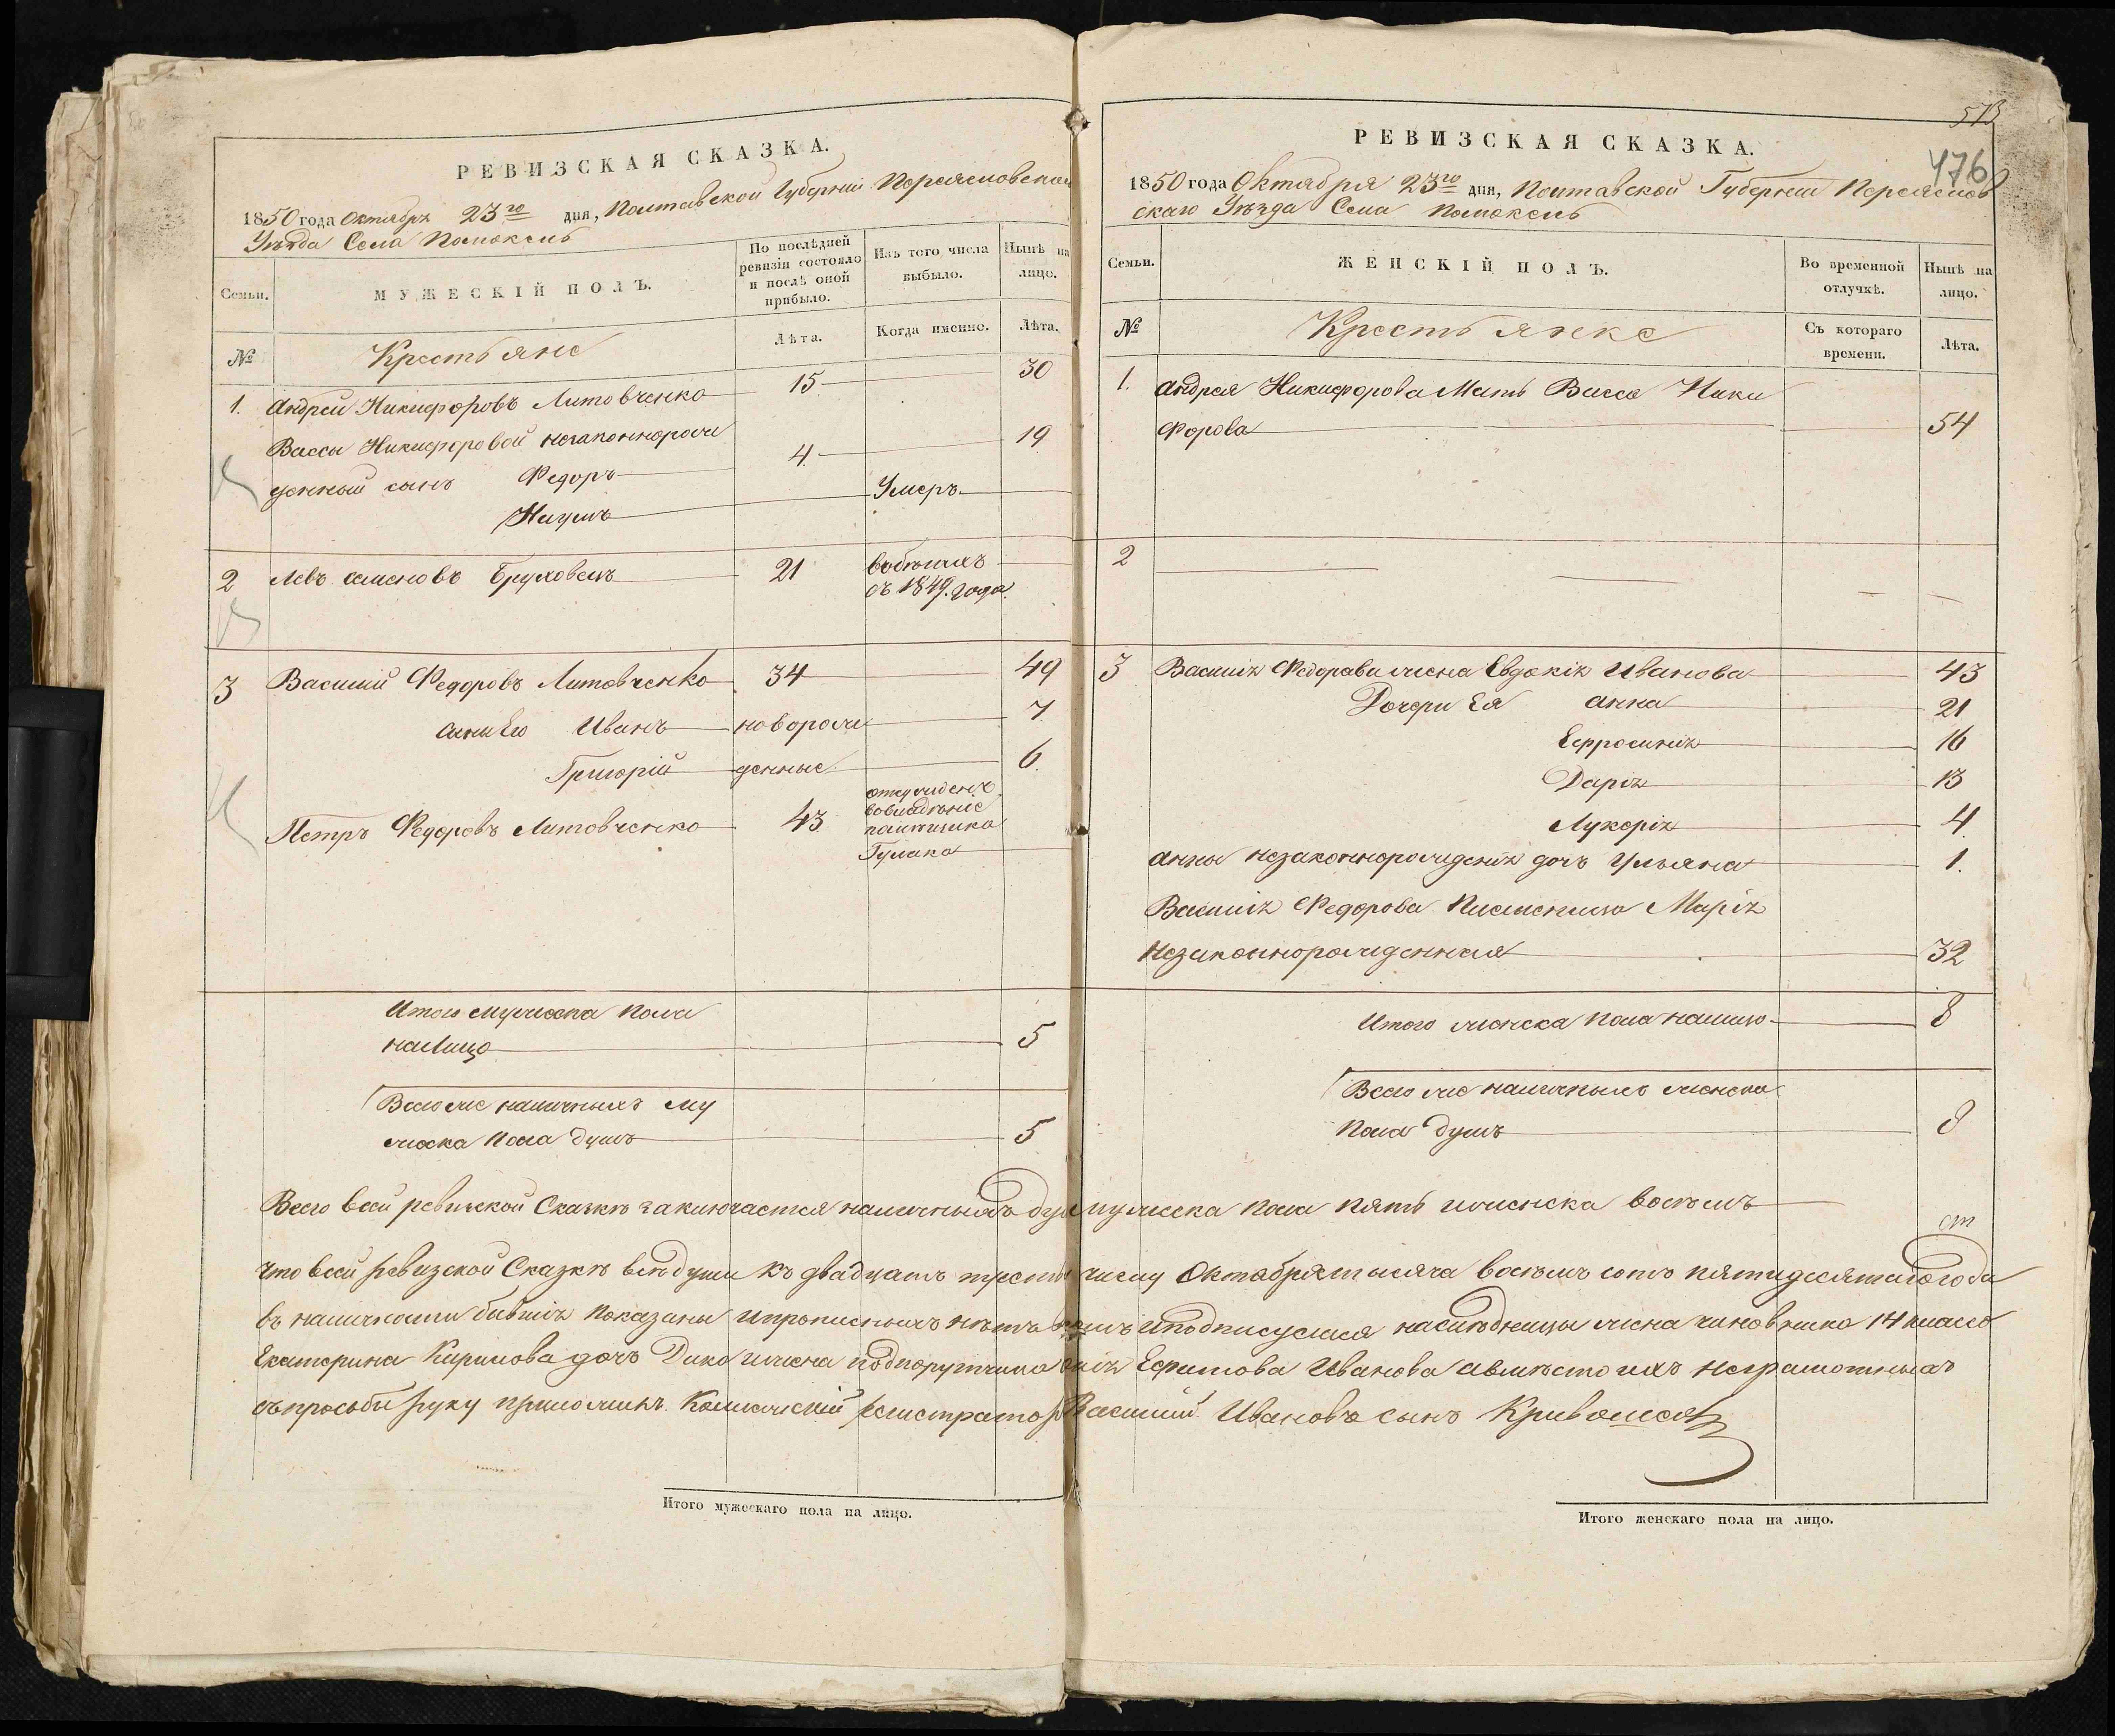 РЕВИЗСКАЯ СКАЗКА.
1850 года Октября 23го дня, Полтавской Губернии Переясловскаго
Уѣзда Села Помоклъ
Семьи.
МУЖЕСКІЙ ПОЛЪ.
По послѣдней
ревизіи состояло
и послѣ оной
прибыло.
Изъ того числа
выбыло.
Нынѣ на
лицо.
№
Крестьяне
Лѣта.
Когда именно.
Лѣта.
1. Андрей Никифоровъ Литовченко 15 30
Вассы Никифоровой незаконнорож
денный сынъ Федоръ 4 19
Наумъ Умеръ
2 Левъ Семеновъ Бруховецъ 21 вобѣгахъ
съ 1849. года.
3 Василий Федоровъ Литовченко 34 49
Сыны Его Иванъ новорож 7
Григорій денные 6
Петръ Федоровъ Литовченко 43 отчужденъ
вовладѣніе
помѣщика
Гулака
Итого мужеска пола
налицо 5
Всего же наличныхъ му
жеска пола душъ 5
513
476
РЕВИЗСКАЯ СКАЗКА.
1850 года Октября 23го дня, Полтавской Губернии Переяслов
скаго Уѣзда Села Помоклъ
Семьи.
ЖЕНСКІЙ ПОЛЪ.
Во временной
отлучкѣ.
Нынѣ на
лицо.
№
Крестьянке
Съ котораго
времени.
Лѣта.
1. Андрея Никифорова Мать Васса Ники
форова 54
2
3 Василія Федорави жена Евдокія Иванова 43
Дочери Ея Анна 21
Ефросинія 16
Дарія 13
Лукерія 4
Анны незаконнорожденія дочь Ульяна 1.
Василія Федорова Племеница Марія
Незаконнорожденная 32
Итого женска пола налицо 8
Всего же наличныхъ женска
пола душъ 8
Всего всей ревизской Сказкѣ заключается наличныхъ душ мужеска пола пять иженска восѣмъ
от
Что всей ревизской Сказкѣ всѣ души къ двадцать третю числу Октября тысяча восѣмъ сотъ пятидесятаго года
въ наличности бывшія показаны ипрописныхъ нѣтъ вчемъ иподписуемся наслѣдницы жена чиновника 14 класса
Екатерина Кирилова дочь ижена подпоручика Ефимова Иванова авмѣсто ихъ неграмотныхъ
съпросьбы руку приложилъ Колежский регистраторъ Василий Ивановъ сынъ
Итого мужескаго пола на лицо.
Итого женскаго пола на лицо.